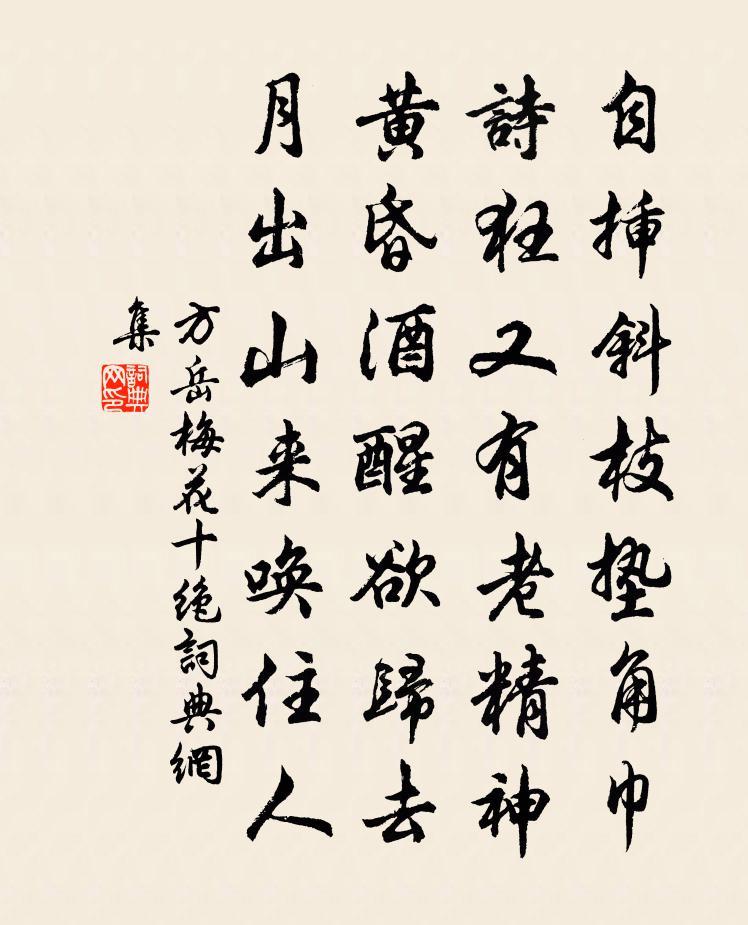 自挿斜枝墊角巾
詩狂又有老精神
黄昏酒醒欲歸去
月出山来喚住人
方岳梅花十絶詞典網
集
詞典
网印